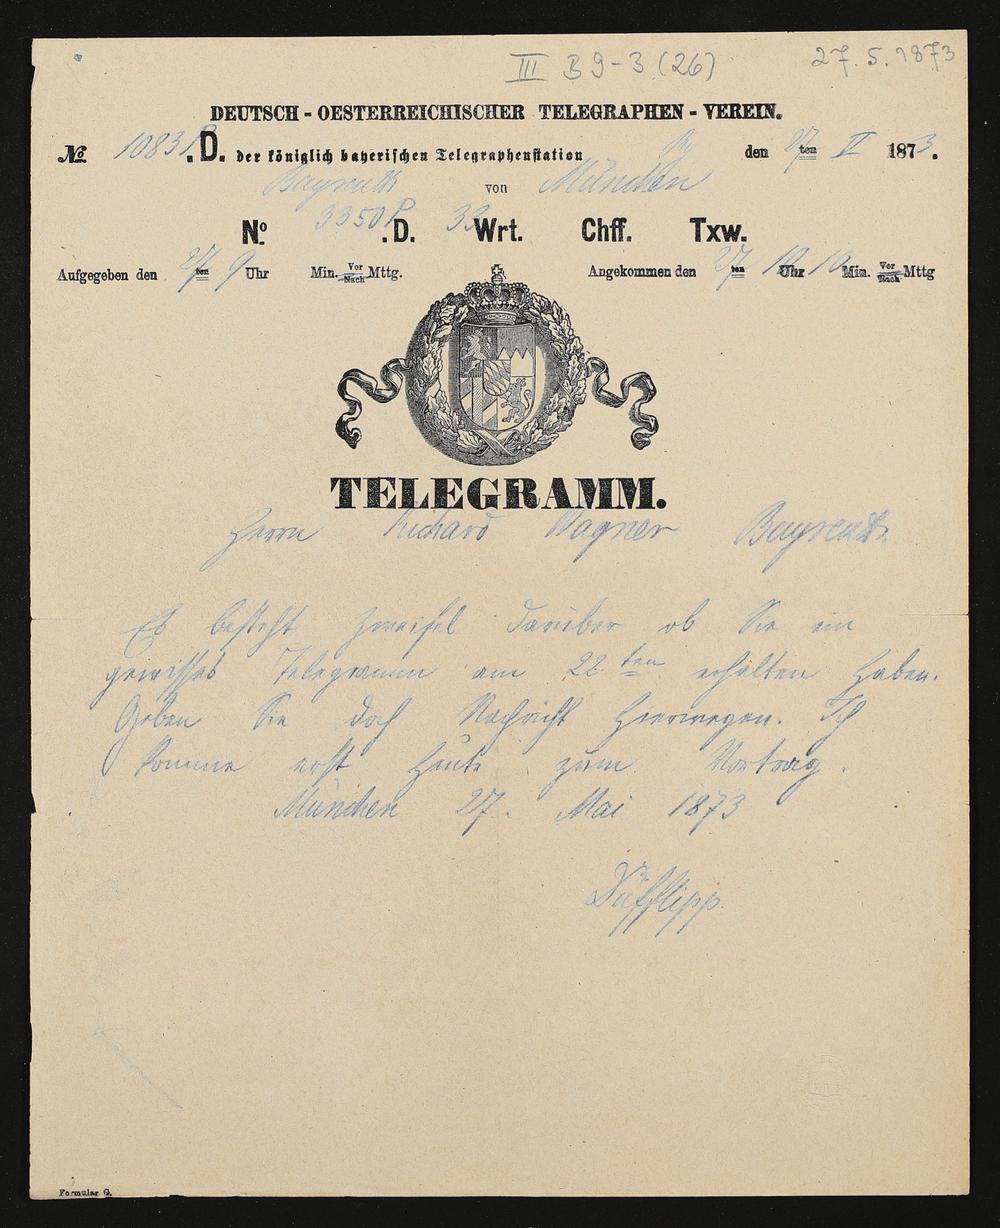 III B 9-3 (26) 27.5.1873
DEUTSCH - OESTERREICHISCHER TELEGRAPHEN - VEREIN.
No 1083 .D. der königlich bayerischen Telegraphenstation den 27ten V 1873.
Bayreuth von München
No. 3350P .D. 33 Wrt. Chff. Txw.
Aufgegeben den 27ten 9 Uhr Min. Vor/Nach Mttg. Angekommen den 27ten 10 Uhr 10 Min. Vor/Nach Mttg
TELEGRAMM.
Herrn Richard Wagner Bayreuth.
Es besteht Zweifel darüber ob Sie ein
gewisses Telegramm am 22ten erhalten haben.
Geben Sie doch Nachricht hierwegen. Ich
komme erst heute zum Vortrag.
München 27. Mai 1873
Düfflipp.
Formular G.